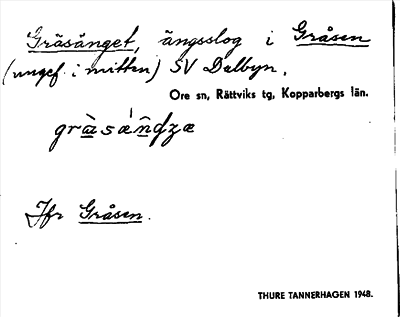 Gräsänget, ängsslog i Gråsen
(ungef. i mitten) SV Dalbyn.
Ore sn, Rättviks tg, Kopparbergs län.
Jfr Gråsen.
THURE TANNERHAGEN 1948.